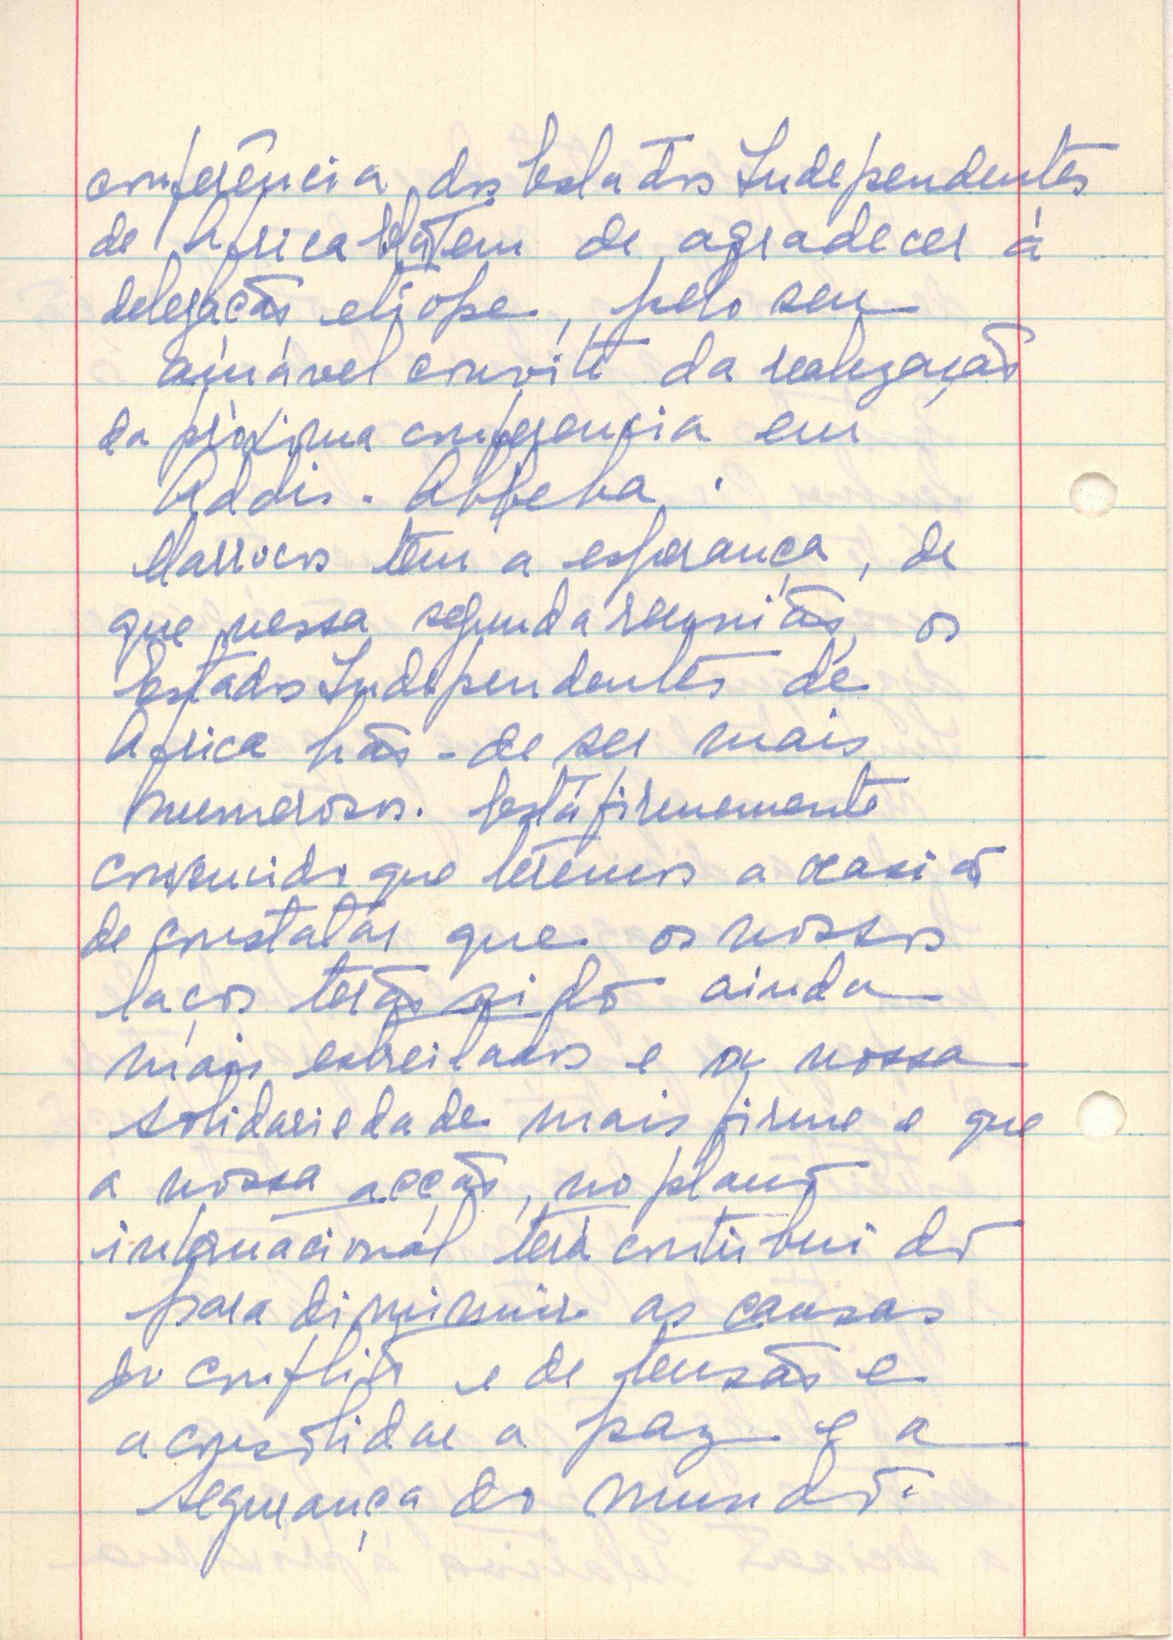 conferência dos Estados Independentes
de Africa de agradecer à
delegação etíope, pelo seu
amável convite da realização
da próxima conferencia em
Addis-Abbeba.
Marrocos tem a esperança, de
que nessa segunda reunião, os
Estados Independentes de
Africa hão-de ser mais
numerosos. Está firmemente
convencido que teremos a ocasião
de constatar que os nossos
laços terão sido ainda
mais estreitados e a nossa
solidariedade mais firme e que
a nossa acção, no plano
internacional terá contribuido
para diminuir as causas
do conflito e de tensão e
a consolidar a paz e a
segurança do mundo.